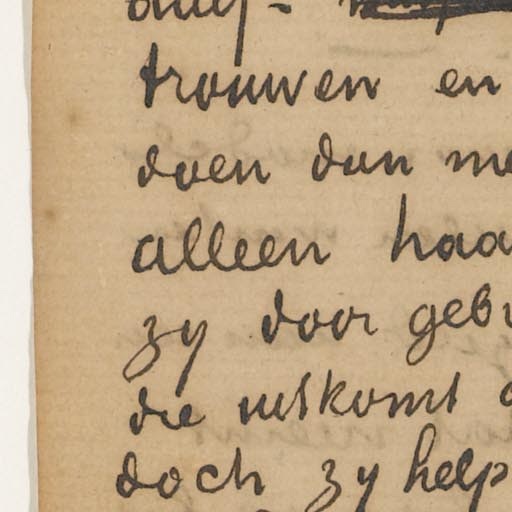 trouwen en
doen dan me
alleen haa
zy door geb
die uitkomt
doch zy help